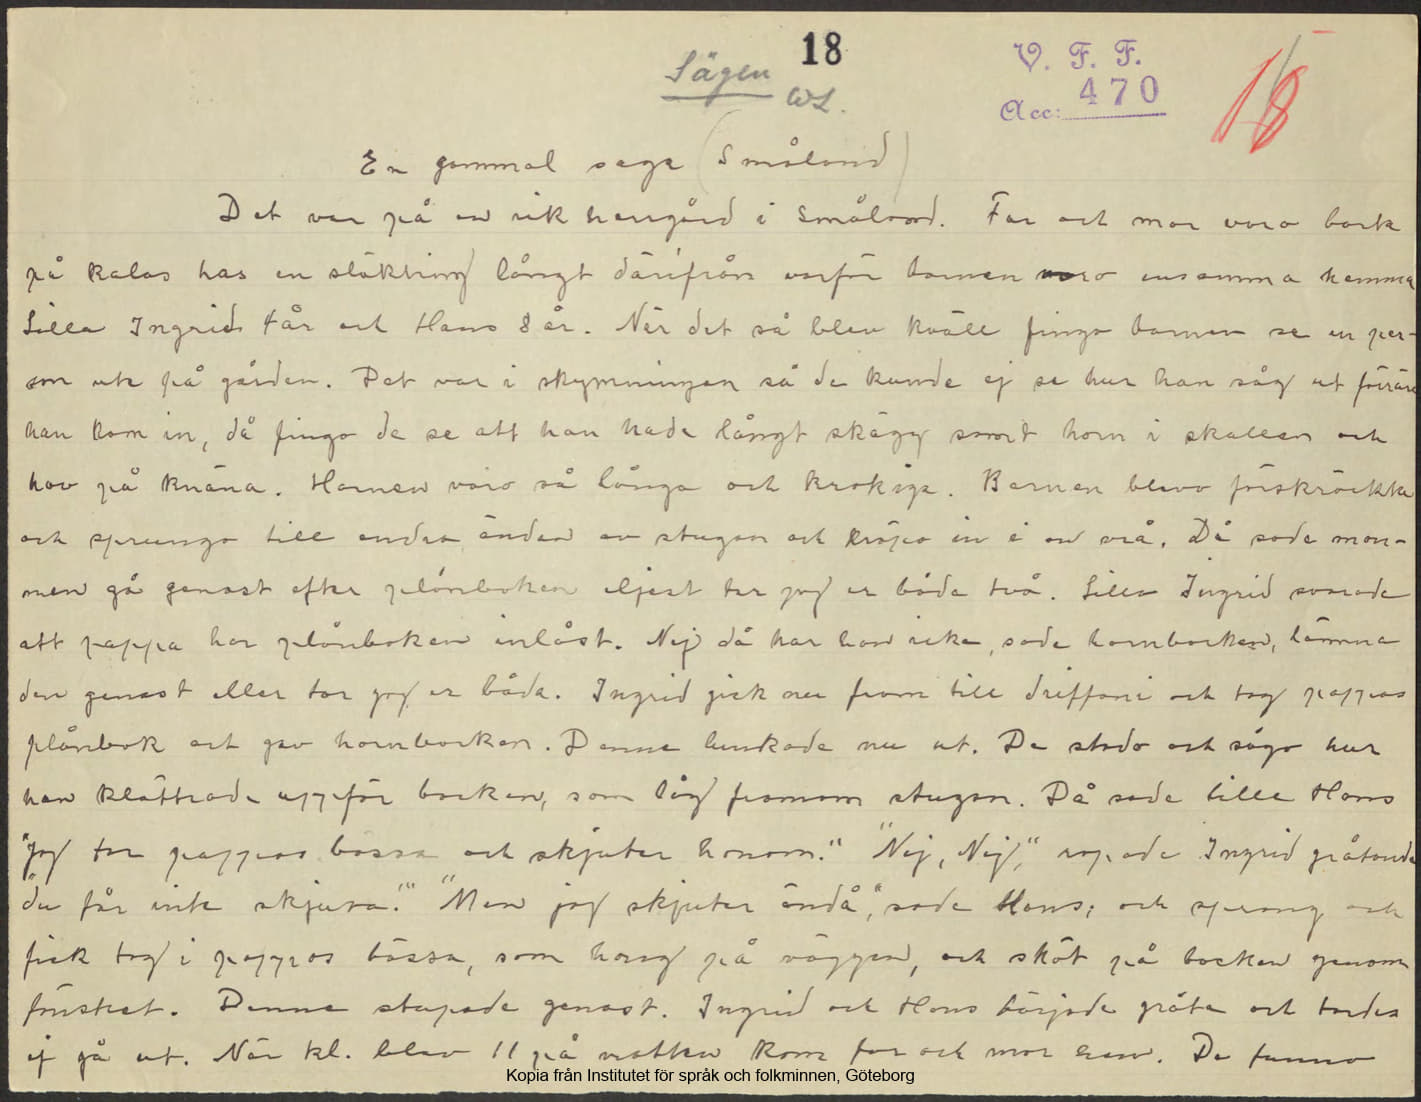 18
Sägen
WL.
V. F. F.
Acc: 470
18
En gammal saga (Småland)
Det var på en rik herrgård i Småland. Far och mor voro bort
på kalas hos en släkting långt därifrån varför barnen voro ensamma hemma
Lilla Ingrid 7 år och Hans 8 år. När det så blev kväll fingo barnen se en per-
son ute på gården. Det var i skymningen så de kunde ej se hur han såg ut förrän
han kom in, då fingo de se att han hade långt skägg samt horn i skallen och
hov på knäna. Hornen voro så långa och krokiga. Barnen blevo förskräckta
och sprungo till andra änden av stugan och kröpo in i en vrå. Då sade man-
nen gå genast efter plånboken eljest tar jag er båda två. Lilla Ingrid svarade
att pappa har plånboken inlåst. Nej då har han icke, sade hornbocken, lämna
den genast eller tar jag er båda. Ingrid gick nu fram till och tog pappas
plånbok och gav hornbocken. Denne lunkade nu ut. De stodo och sågo hur
han klättrade uppför backen, som låg framom stugan. Då sade lille Hans
"Jag tar pappas bössa och skjuter honom." "Nej, Nej," ropade Ingrid gråtande
"du får inte skjuta." "Men jag skjuter ändå," sade Hans; och sprang och
fick tag i pappas bössa, som hang på väggen, och sköt på bocken genom
fönstret. Denne stupade genast. Ingrid och Hans började gråta och tordes
ej gå ut. När kl. blev 11 på natten kom far och mor hem. De funno
Kopia från Institutet för språk och folkminnen, Göteborg